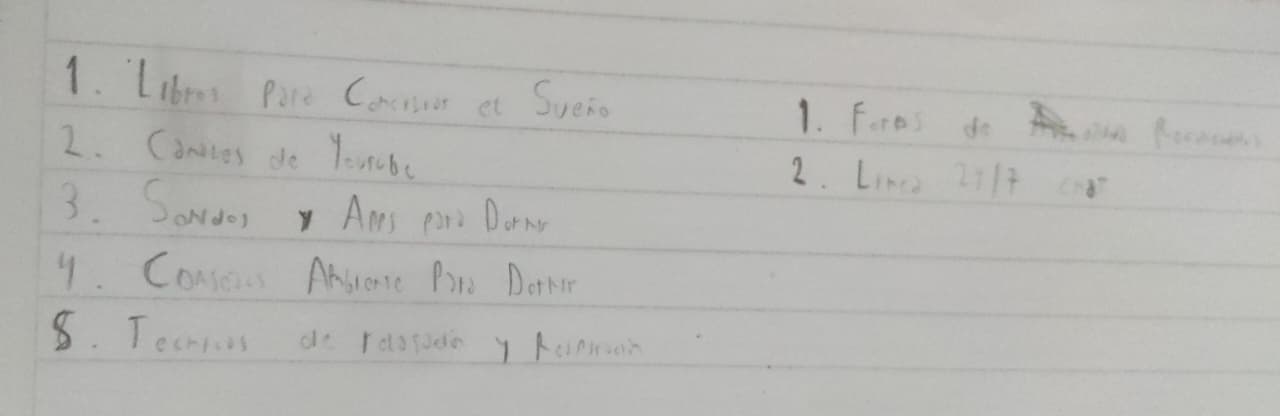 1. Libros para Conciliar el Sueño
2. Canales de Youtube
3. Sonidos y Apps para Dormir
4. Consejos Ambiente Para Dormir
5. Tecnicas de relajación y Respiración
1. Foros de
2. Linea 24/7 chat